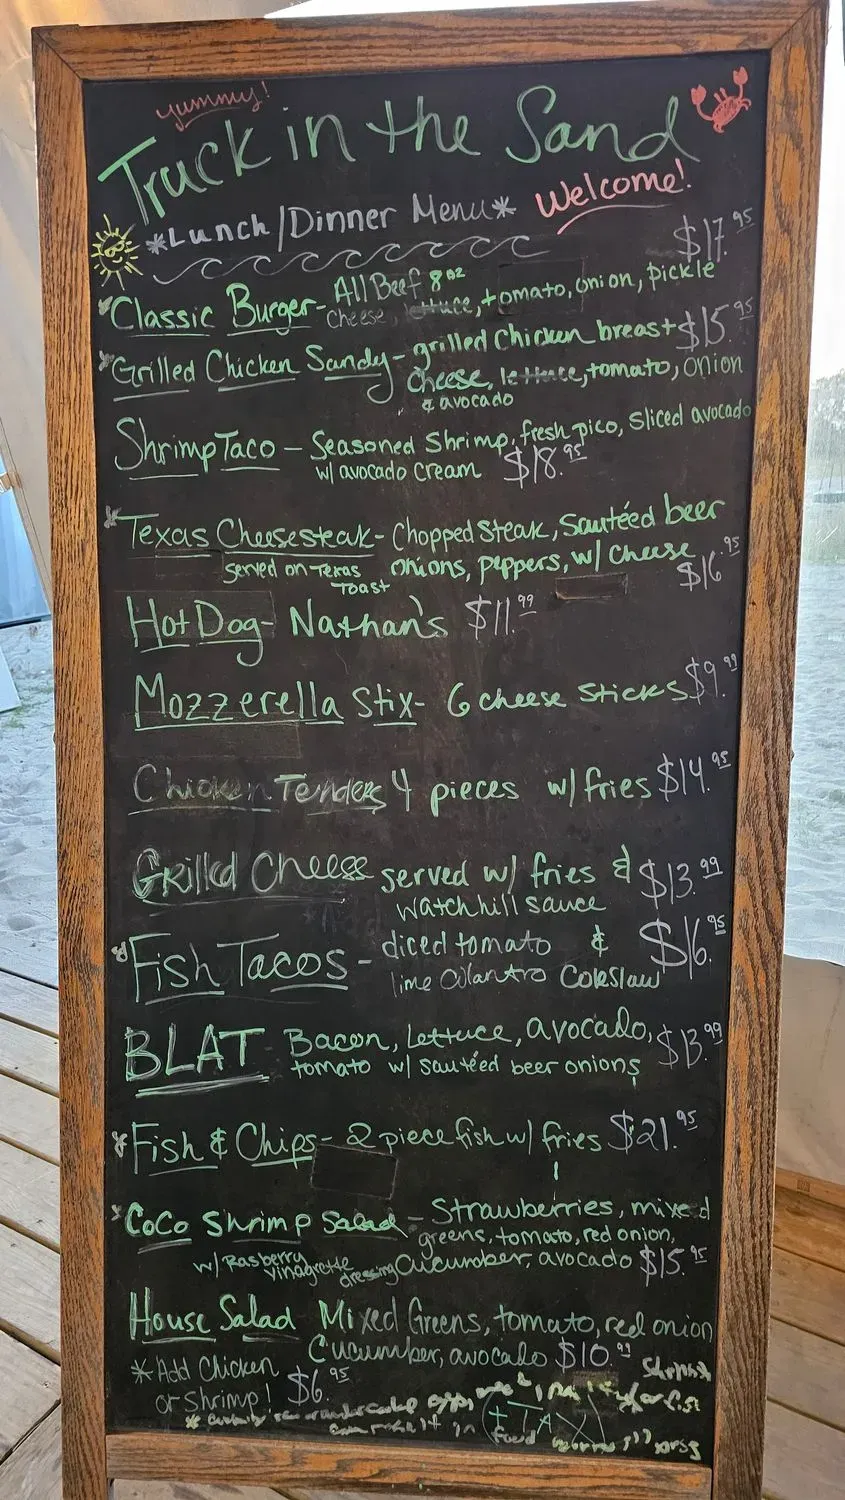 yummy!
Truck in the Sand
*Lunch/Dinner Menu* Welcome!
$17.95
Classic Burger- All Beef 8oz
cheese, lettuce, tomato, onion, pickle
Grilled Chicken Sandy- grilled chicken breast $15.95
cheese, lettuce, tomato, onion
& avocado
Shrimp Taco - Seasoned Shrimp, fresh pico, sliced avocado
w/ avocado cream $18.95
Texas Cheesesteak- Chopped Steak, Sautéed beer
served on Texas onions, peppers, w/ cheese
Toast $16.95
Hot Dog- Nathan's $11.99
Mozzerella Stix- 6 cheese sticks $9.99
Chicken Tenders 4 pieces w/ fries $14.95
Grilled Cheese served w/ fries & $13.99
watchhill sauce
Fish Tacos - diced tomato & $16.95
lime cilantro Coleslaw
BLAT Bacon, Lettuce, avocado, $13.99
tomato w/ sautéed beer onions
Fish & Chips- 2 piece fish w/ fries $21.95
CoCo Shrimp Salad - Strawberries, mixed
greens, tomato, red onion,
w/ Rasberry vinagrette dressing Cucumber, avocado $15.95
House Salad Mixed Greens, tomato, red onion
Cucumber, avocado $10.99
*Add Chicken
or Shrimp! $6.95
* or undercooked
(+TAX)
food